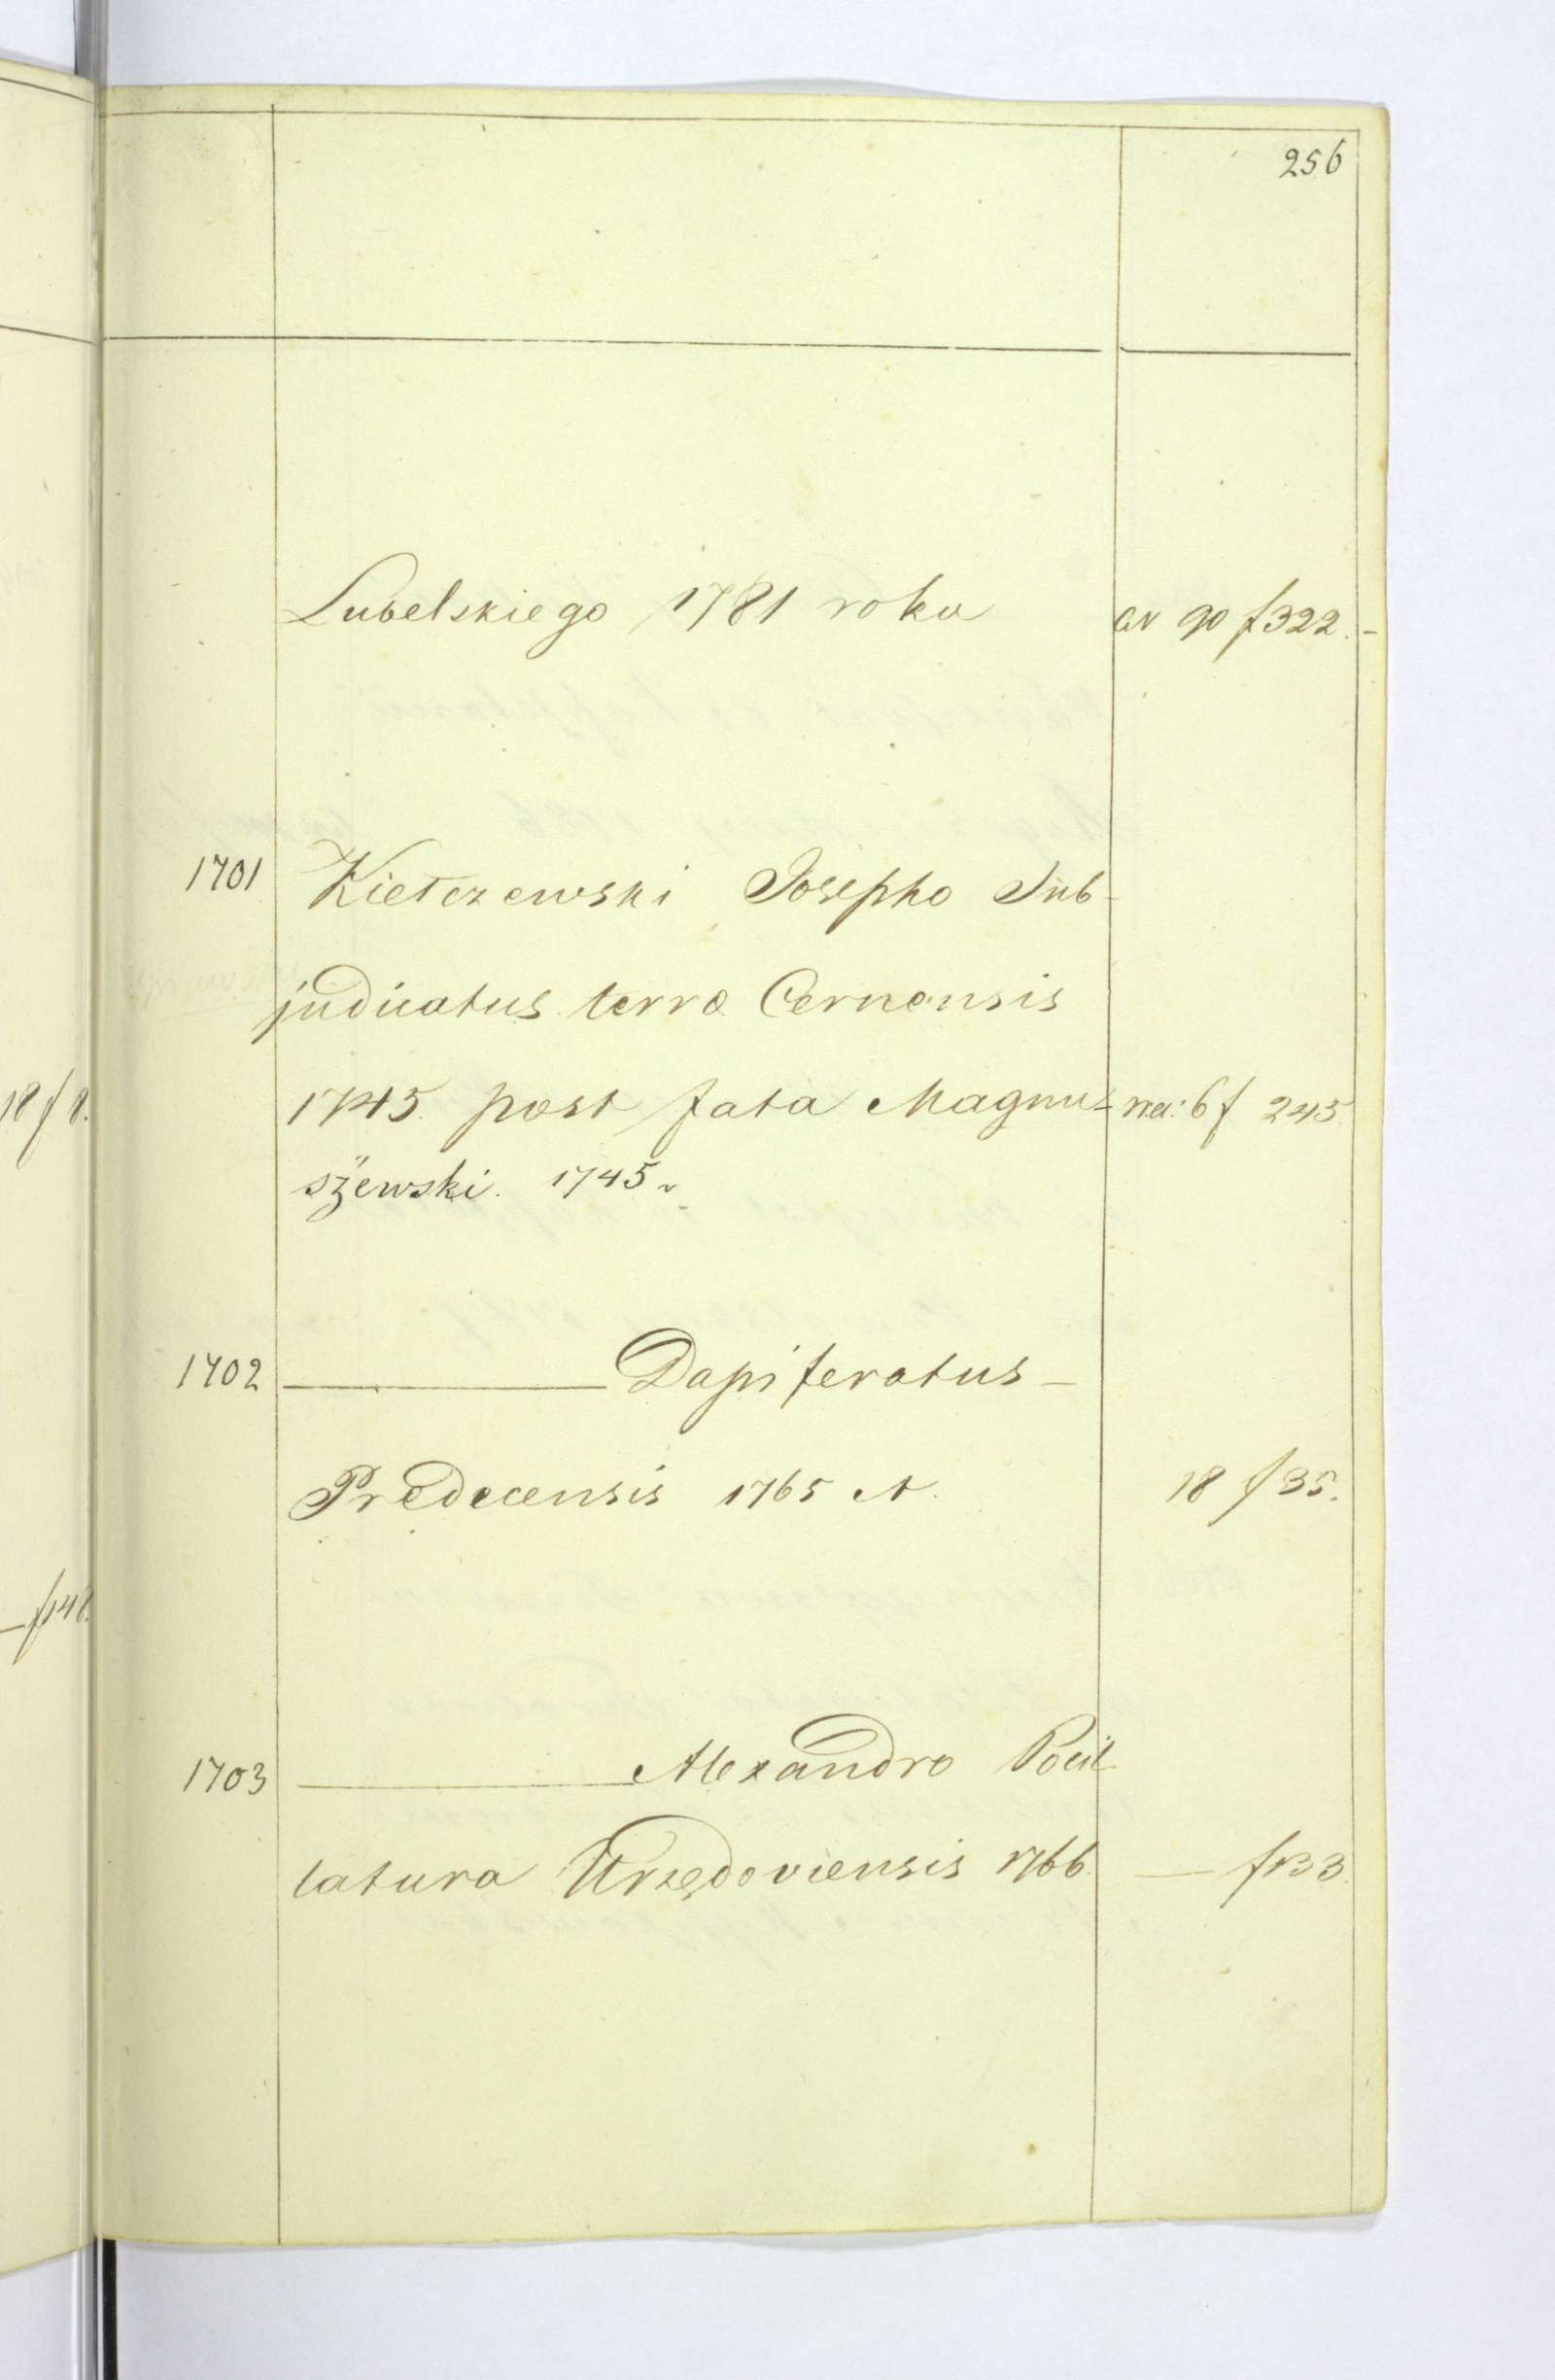 256
Lubelskiego 1781 roku av 90 f 322. -
1701 Kiełczewski Josepho Sub-
judicatus terra Cernensis
1745. post fata Magnu- na: 6 f 245.
szewski. 1745
1702 ——— Dapiferatus -
Predecensis 1765 A. 18 f 35.
1703 ——— Alexandro Pocil-
latura Urzędoviensis 1766. — f 133.
18 f 8.
— f 148.